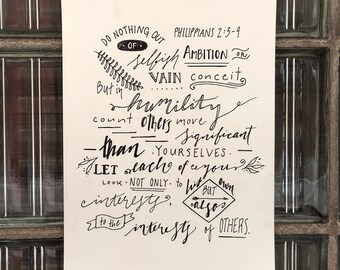 DO NOTHING OUT
PHILIPPIANS 2:3-4
OF
selfish AMBITION or
VAIN conceit
But in humility
count others more
significant
than YOURSELVES.
LET each of you
LOOK NOT ONLY to his own
interests, BUT also
to the interests of OTHERS.